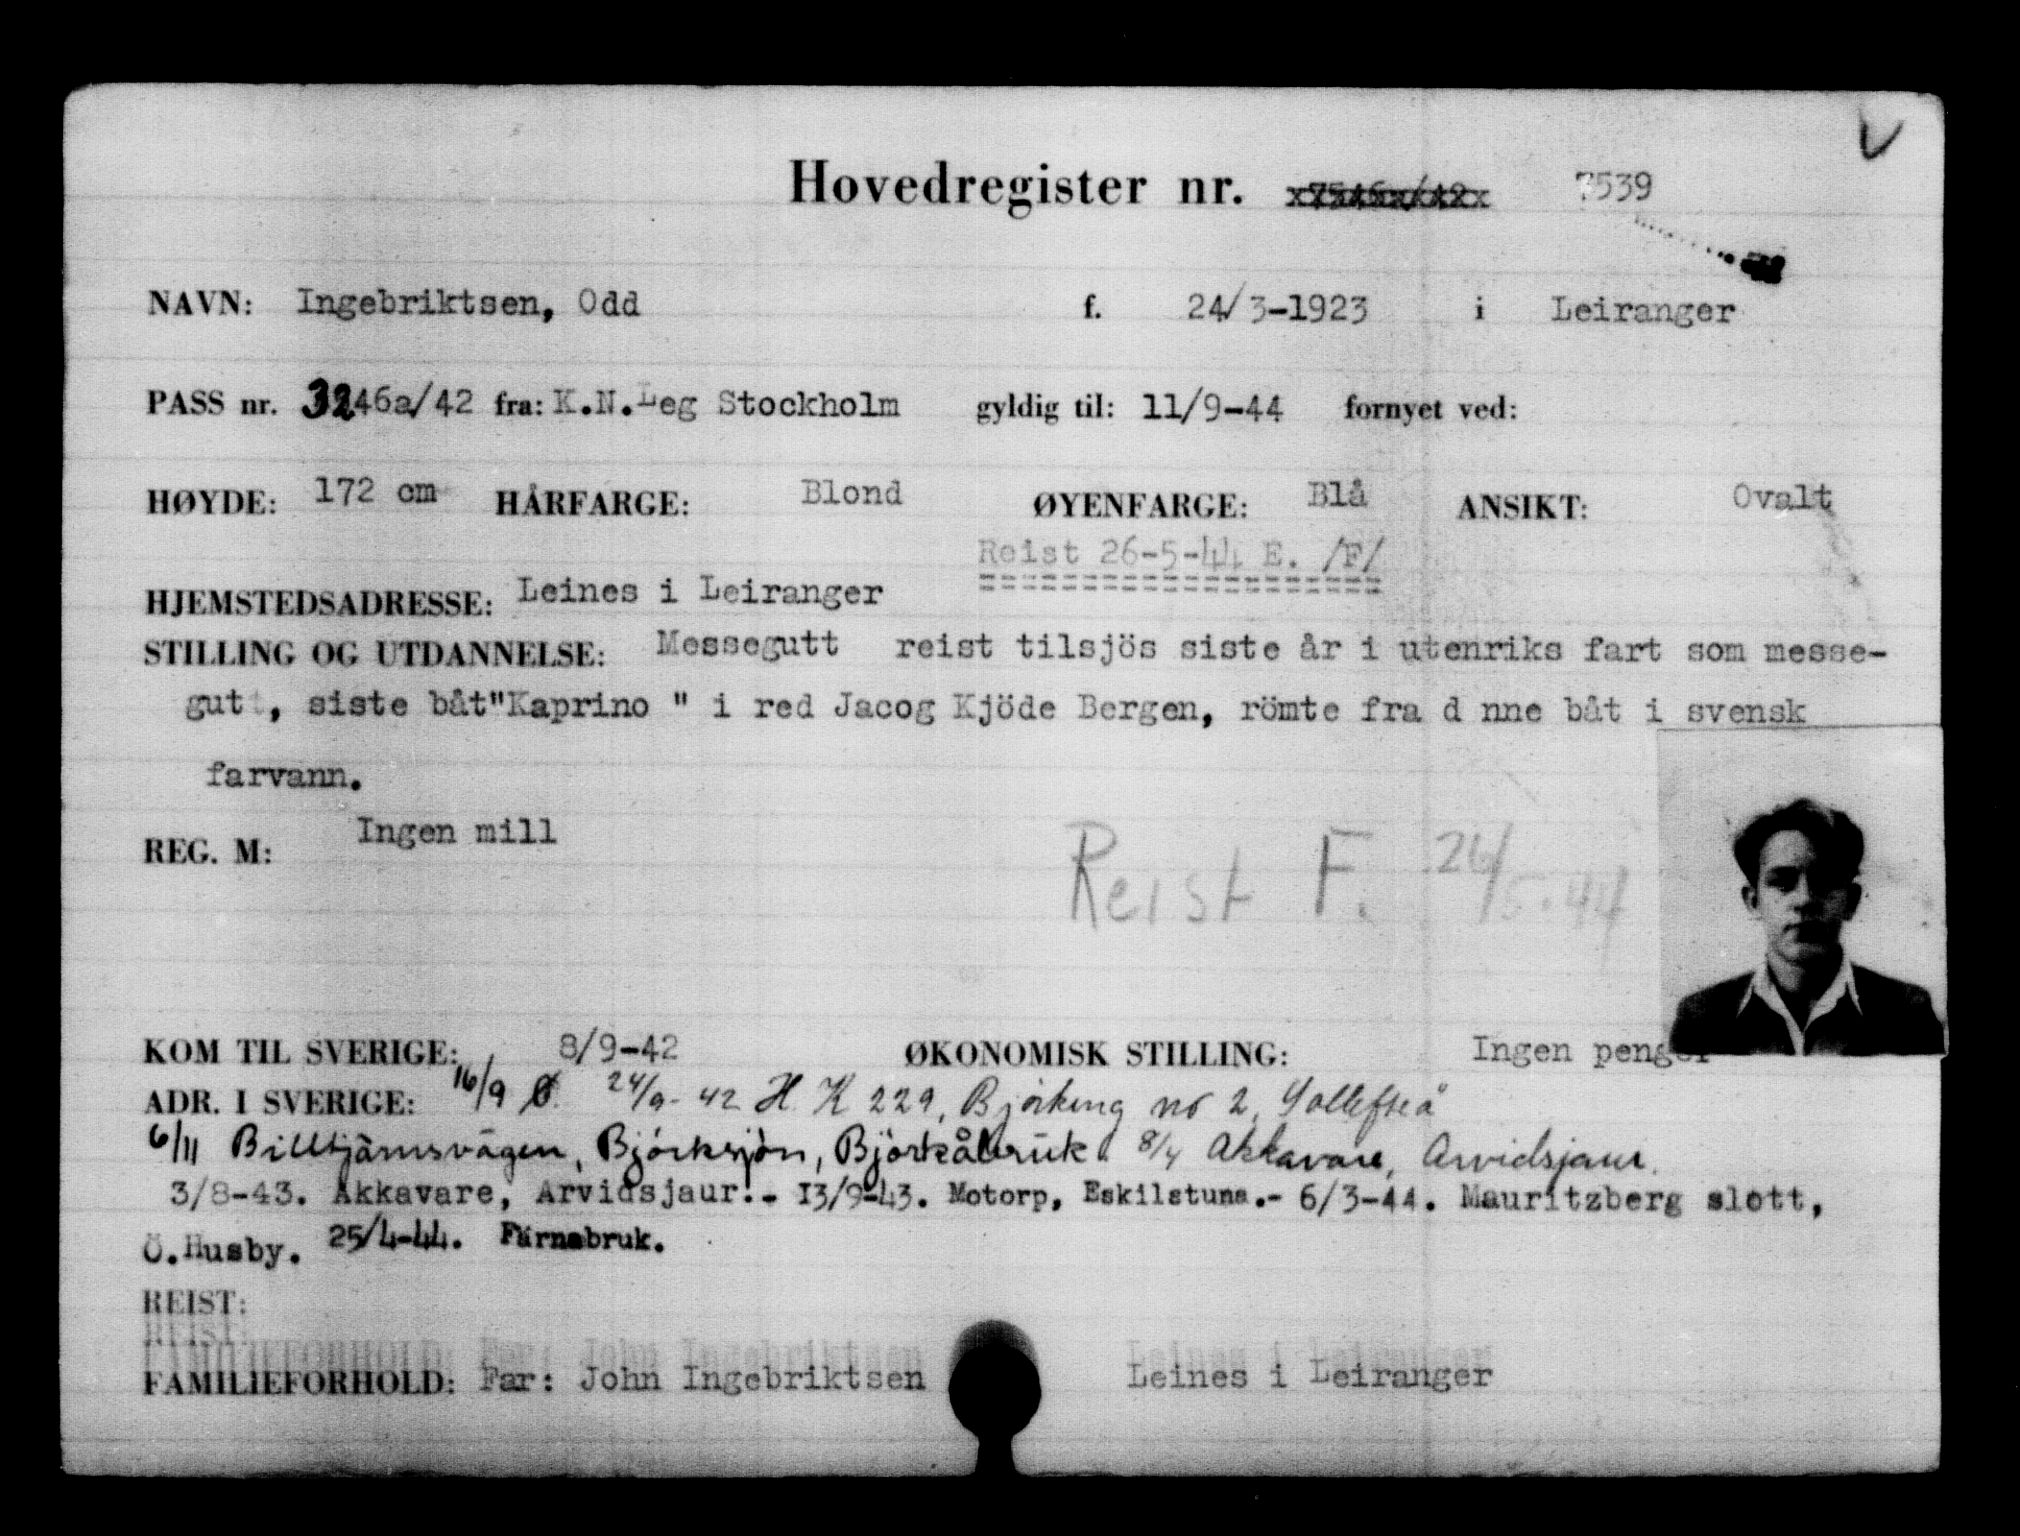 Hovedregister nr. x7546a/42x 7539
NAVN: Ingebriktsen, Odd f. 24/3-1923 i Leiranger
PASS nr. 3246a/42 fra: K.N.Leg Stockholm gyldig til: 11/9-44 fornyet ved:
HØYDE: 172 cm HÅRFARGE: Blond ØYENFARGE: Blå ANSIKT: Ovalt
Reist 26-5-44 E. /F/
HJEMSTEDSADRESSE: Leines i Leiranger
STILLING OG UTDANNELSE: Messegutt reist tilsjös siste år i utenriks fart som messe-
gutt, siste båt"Kaprino " i red Jacog Kjöde Bergen, römte fra d nne båt i svensk
farvann.
REG. M: Ingen mill
Reist F. 26/5.44
KOM TIL SVERIGE: 8/9-42 ØKONOMISK STILLING: Ingen penger
ADR. I SVERIGE: 16/9 Ø. 24/9-42 H K 229, Björking no 2, Sollefteå
6/11 Billtjärnsvägen, Björksjön, Björkåbruk. 8/4 Akkavare, Arvidsjaur.
3/8-43. Akkavare, Arvidsjaur.- 13/9-43. Motorp, Eskilstuna.- 6/3-44. Mauritzberg slott,
Ö.Husby. 25/4-44. Färnabruk.
REIST:
FAMILIEFORHOLD: Far: John Ingebriktsen Leines i Leiranger